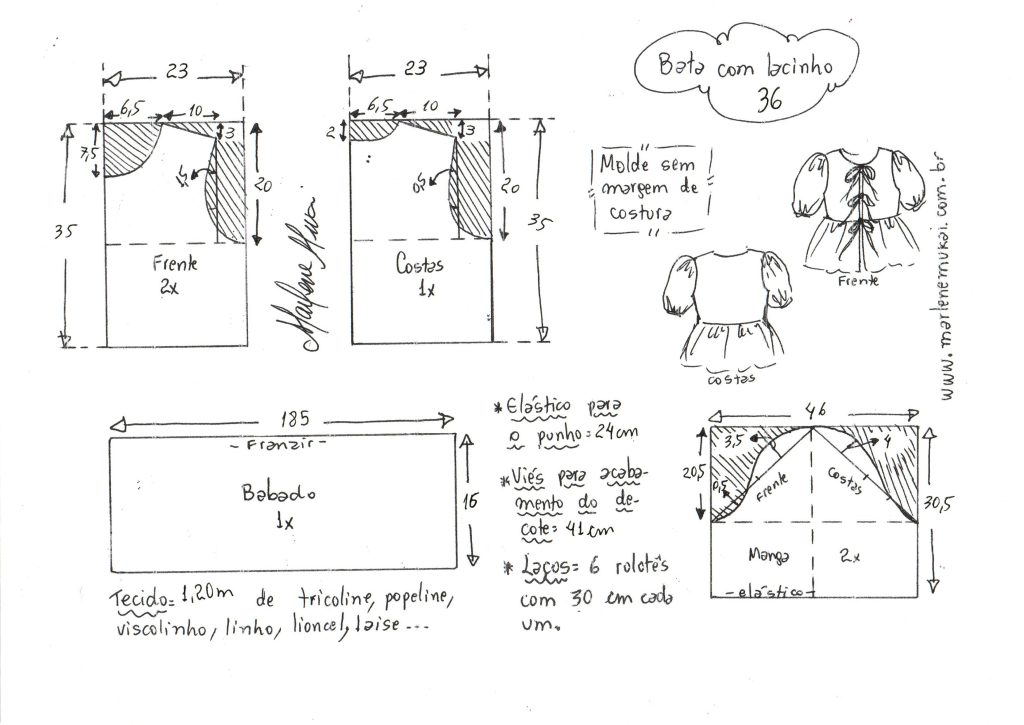 Bata com lacinho
36
23
6,5
10
3
7,5
20
35
Frente
2x
23
6,5
10
2
3
20
35
Costas
1x
Molde sem
margem de
costura
Frente
costas
www.marlenemukai.com.br
185
- Franzir -
Babado
1x
16
Tecido= 1,20m de tricoline, popeline,
viscolinho, linho, lioncel, laise...
* Elástico para
o punho=24cm
* Viés para acaba-
mento do de-
cote= 41cm
* Laços= 6 rolotês
com 30 cm cada
um.
46
3,5
4
20,5
0,5
Frente
Costas
30,5
Manga
2x
- elástico -